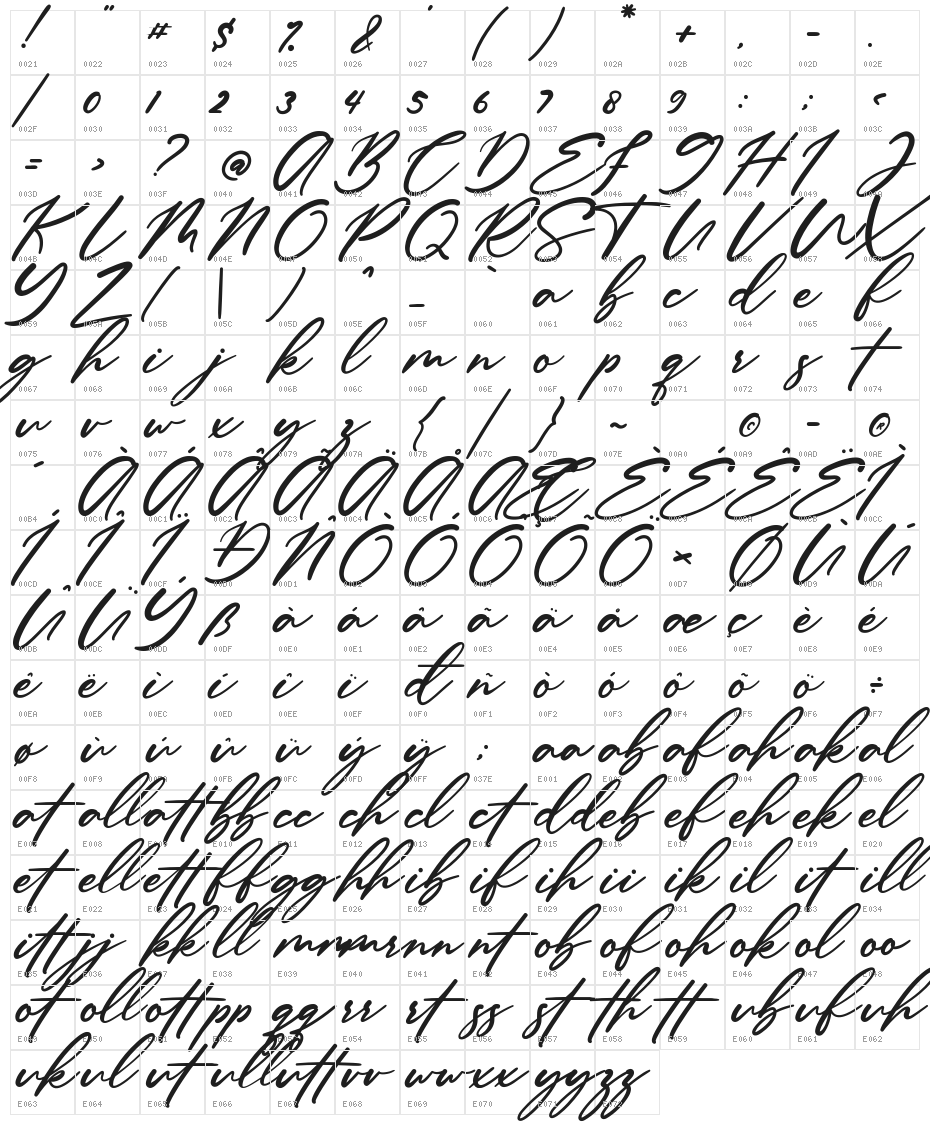 ! " # $ % & ' ( ) * + , - .
0021 0022 0023 0024 0025 0026 0027 0028 0029 002A 002B 002C 002D 002E
/ 0 1 2 3 4 5 6 7 8 9 : ; <
002F 0030 0031 0032 0033 0034 0035 0036 0037 0038 0039 003A 003B 003C
= > ? @ A B C D E F G H I J
003D 003E 003F 0040 0041 0042 0043 0044 0045 0046 0047 0048 0049 004A
K L M N O P Q R S T U V W X
004B 004C 004D 004E 004F 0050 0051 0052 0053 0054 0055 0056 0057 0058
Y Z [ \ ] ^ _ ` a b c d e f
0059 005A 005B 005C 005D 005E 005F 0060 0061 0062 0063 0064 0065 0066
g h i j k l m n o p q r s t
0067 0068 0069 006A 006B 006C 006D 006E 006F 0070 0071 0072 0073 0074
u v w x y z { | } ~ © - ®
0075 0076 0077 0078 0079 007A 007B 007C 007D 007E 00A0 00A9 00AD 00AE
´ À Á Â Ã Ä Å Æ Ç È É Ê Ë Ì
00B4 00C0 00C1 00C2 00C3 00C4 00C5 00C6 00C7 00C8 00C9 00CA 00CB 00CC
Í Î Ï Ð Ñ Ò Ó Ô Õ Ö × Ø Ù Ú
00CD 00CE 00CF 00D0 00D1 00D2 00D3 00D4 00D5 00D6 00D7 00D8 00D9 00DA
Û Ü Ý ß à á â ã ä å æ ç è é
00DB 00DC 00DD 00DF 00E0 00E1 00E2 00E3 00E4 00E5 00E6 00E7 00E8 00E9
ê ë ì í î ï ð ñ ò ó ô õ ö ÷
00EA 00EB 00EC 00ED 00EE 00EF 00F0 00F1 00F2 00F3 00F4 00F5 00F6 00F7
ø ù ú û ü ý ÿ ; aa ab af ah ak al
00F8 00F9 00FA 00FB 00FC 00FD 00FF 037E E001 E002 E003 E004 E005 E006
at all att bb cc ch cl ct dd eb ef eh ek el
E007 E008 E009 E010 E011 E012 E013 E014 E015 E016 E017 E018 E019 E020
et ell ett ff gg hh ib if ih ii ik il it ill
E021 E022 E023 E024 E025 E026 E027 E028 E029 E030 E031 E032 E033 E034
itt jj kk ll mm nn nt ob of oh ok ol oo
E035 E036 E037 E038 E039 E040 E041 E042 E043 E044 E045 E046 E047 E048
ot oll ott pp qq rr rt ss st th tt ub uf uh
E049 E050 E051 E052 E053 E054 E055 E056 E057 E058 E059 E060 E061 E062
uk ul ut ull utt vv ww xx yy zz
E063 E064 E065 E066 E067 E068 E069 E070 E071 E072